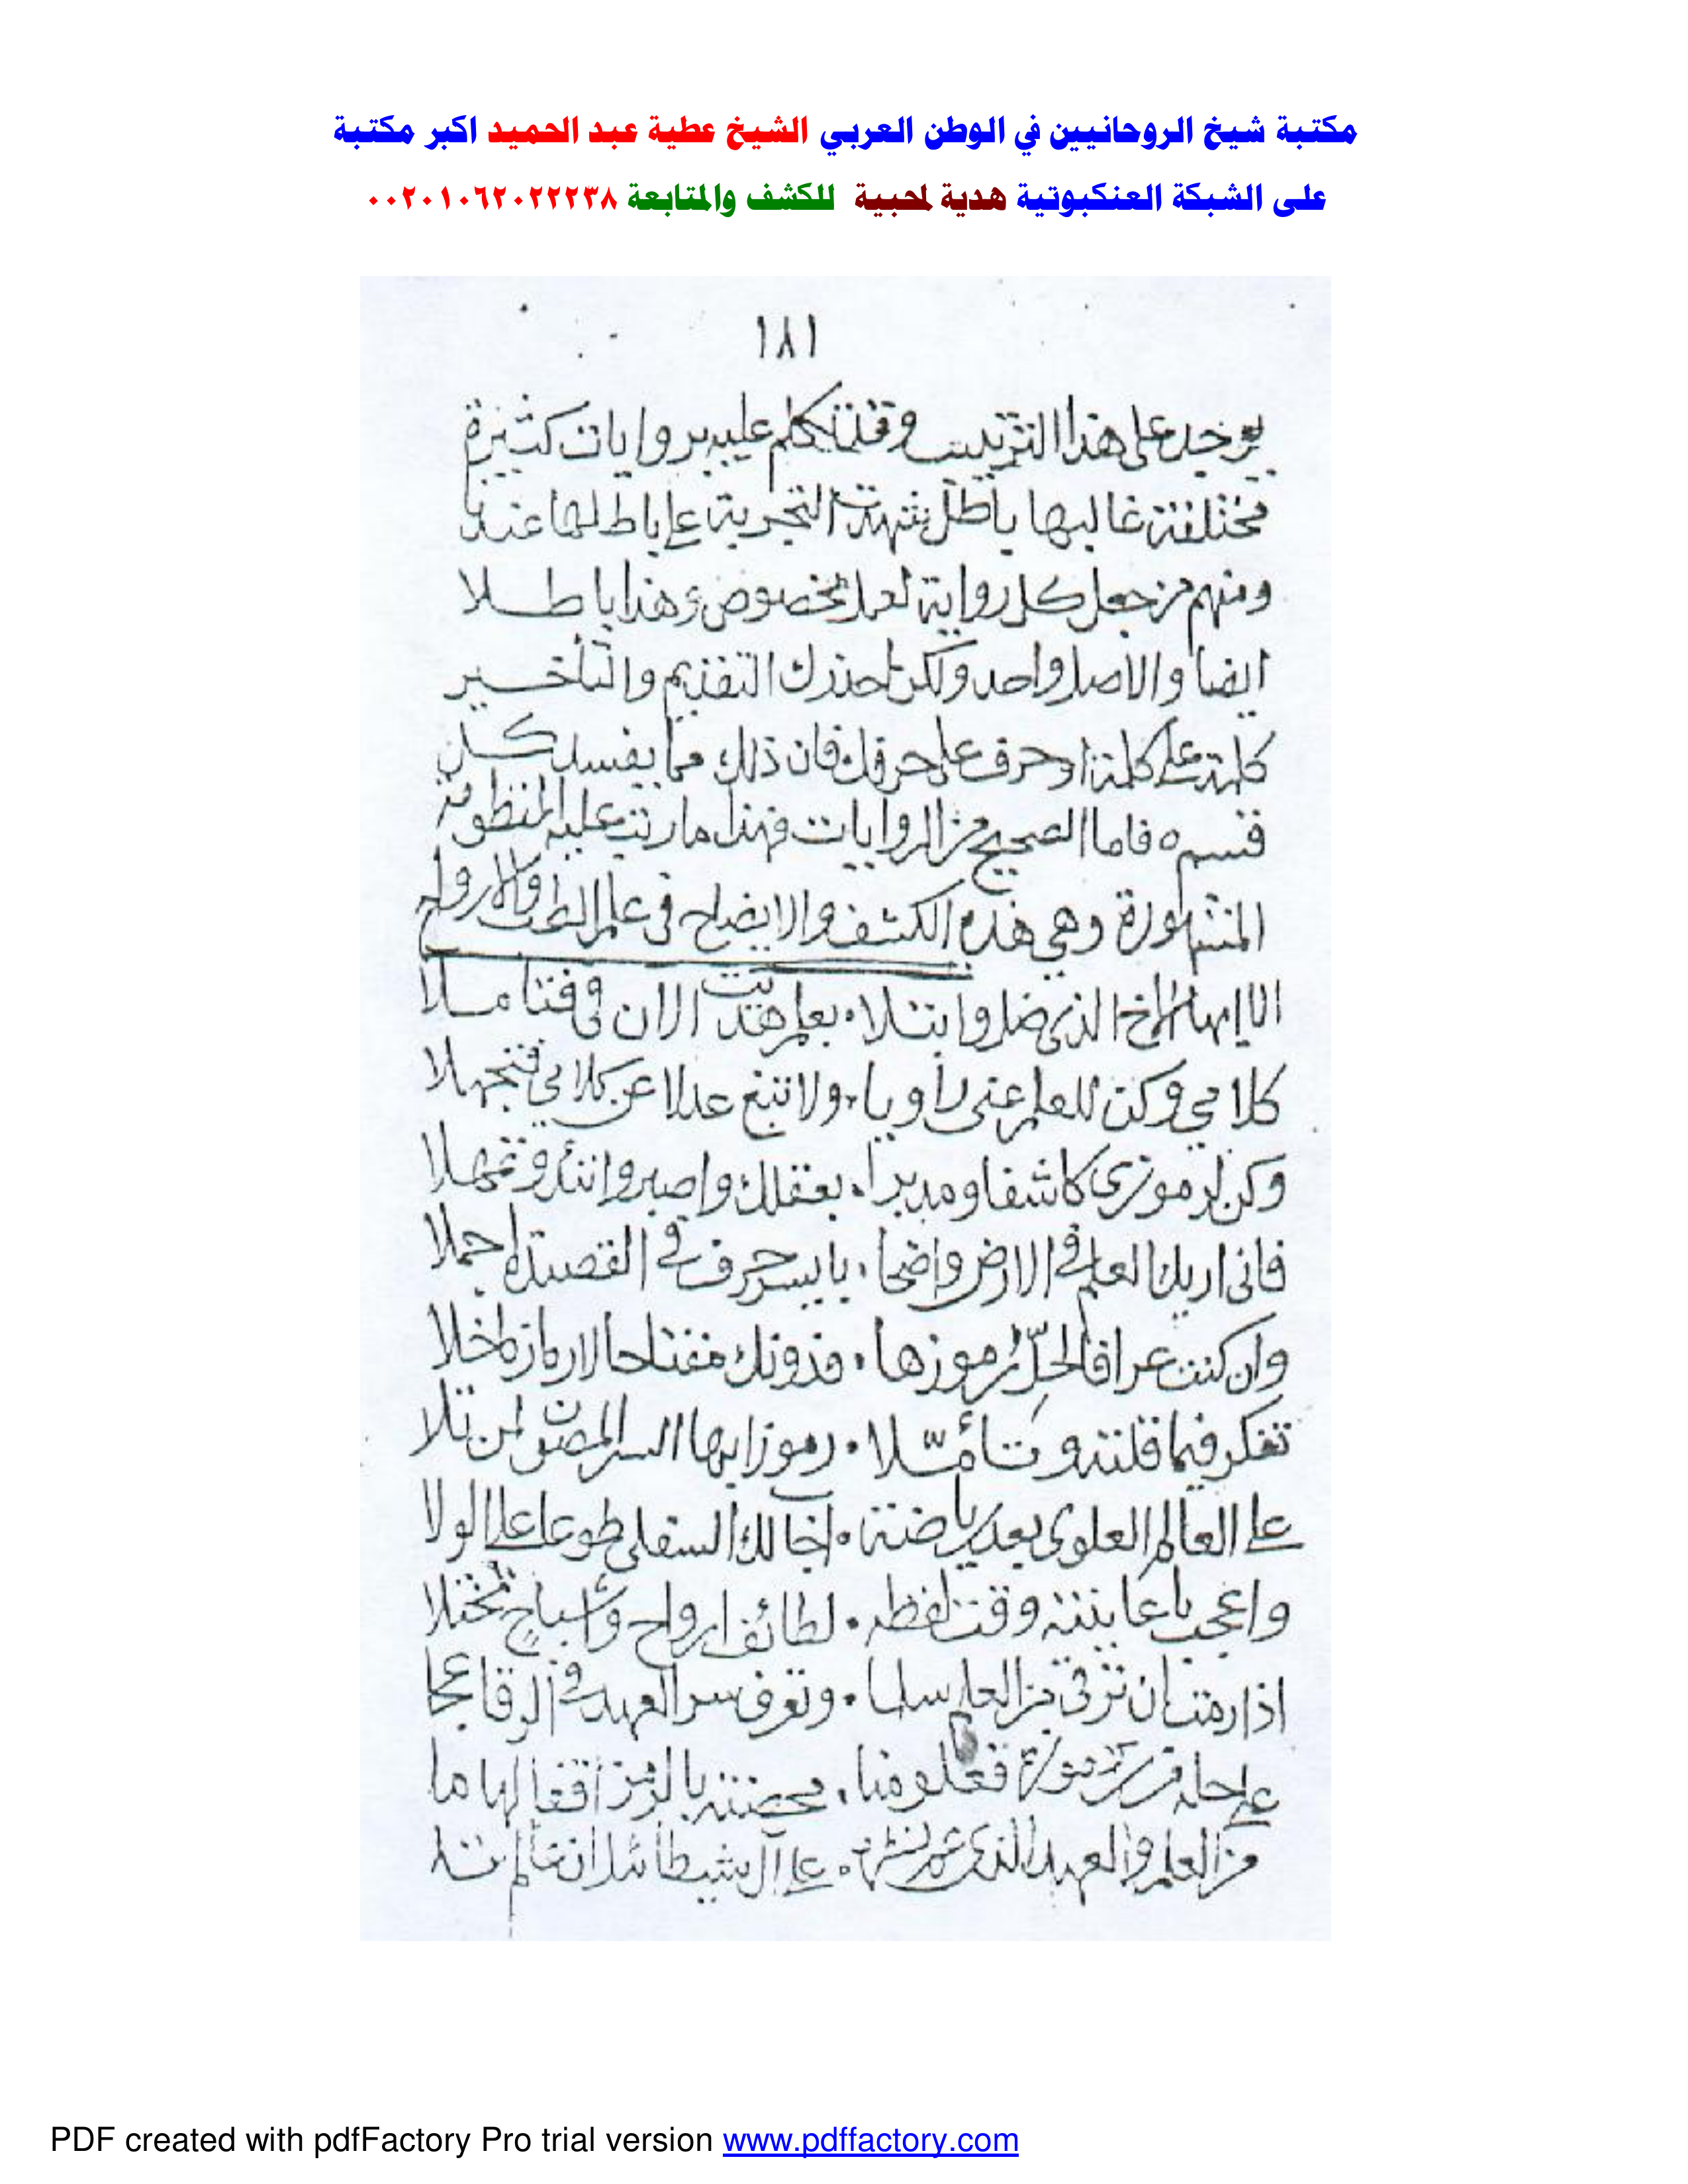 مكتبة شيخ الروحانيين في الوطن العربي الشيخ عطية عبد الحميد اكبر مكتبة
على الشبكة العنكبوتية هدية لمحبية للكشف والمتابعة ٠٠٢٠١٠٦٢٠٢٢٢٣٨
١٨١
يوجد على هذا الترتيب وقد تكلم عليه بروايات كثيرة
مختلفة غالبها باطل شهدت التجربة على باطلها عندنا
ومنهم من جعل كل رواية لعمل مخصوص وهذا باطلا
ايضا والاصل واحد ولكن احذرك التقديم والتأخير
كلمة على كلمة او حرف على حرف فان ذلك مما يفسد كل
قسم ه فاما الصحيح من الروايات فهذا ما رتبت عليه المنظومة
المشهورة وهي هذه الكشف والايضاح في علم والارواح
الا ايها الاخ الذي ضل وابتلا ٠ بعلم هديت الان في فتاملا
كلامي وكن للعلم عني راويا ٠ ولا تبغ عدلا عن كلامي فتجهلا
وكن لرموزي كاشفا ومدبرا ٠ بعقلك واصبر واتئد وتمهلا
فاني اريك العلم في الارض واضحا ٠ بايسر حرف في القصيدة اجملا
وان كنت عرافا لحل رموزها ٠ فدونك مفتاحا
تفكر فيما قلته وتأمّلا ٠ رموزا بها السر المصون لمن تلا
على العالم العلوي بعد رياضة ٠ اجابك السفلي طوعا على الولا
واعجب ما عاينته وقت لفظه ٠ لطائف ارواح واشباح
اذا رمت ان ترقى من العلم سلما ٠ وتعرف سر العهد في
على حل من ٠ محصنة بالرمز اقفالها ما
من العلم والعهد الذي ٠ على آل
PDF created with pdfFactory Pro trial version www.pdffactory.com